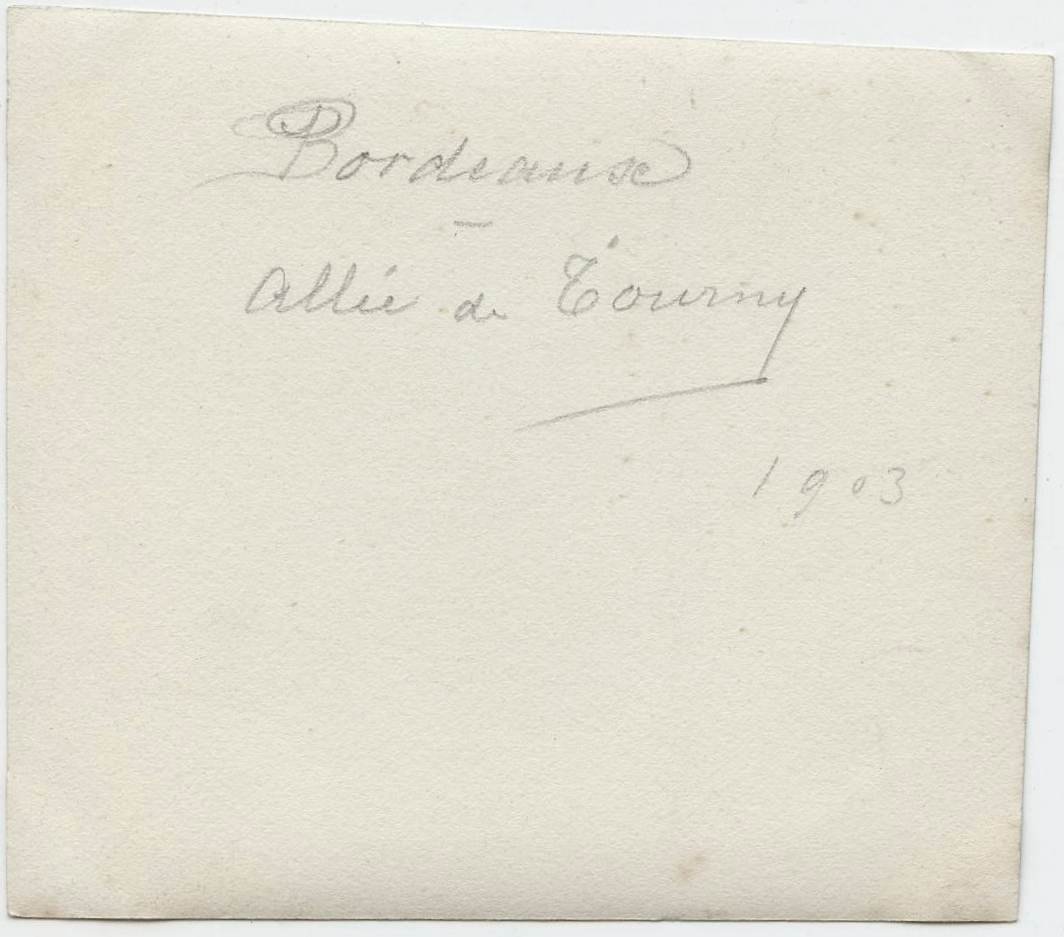 Bordeaux
-
Allée de Tourny
1903